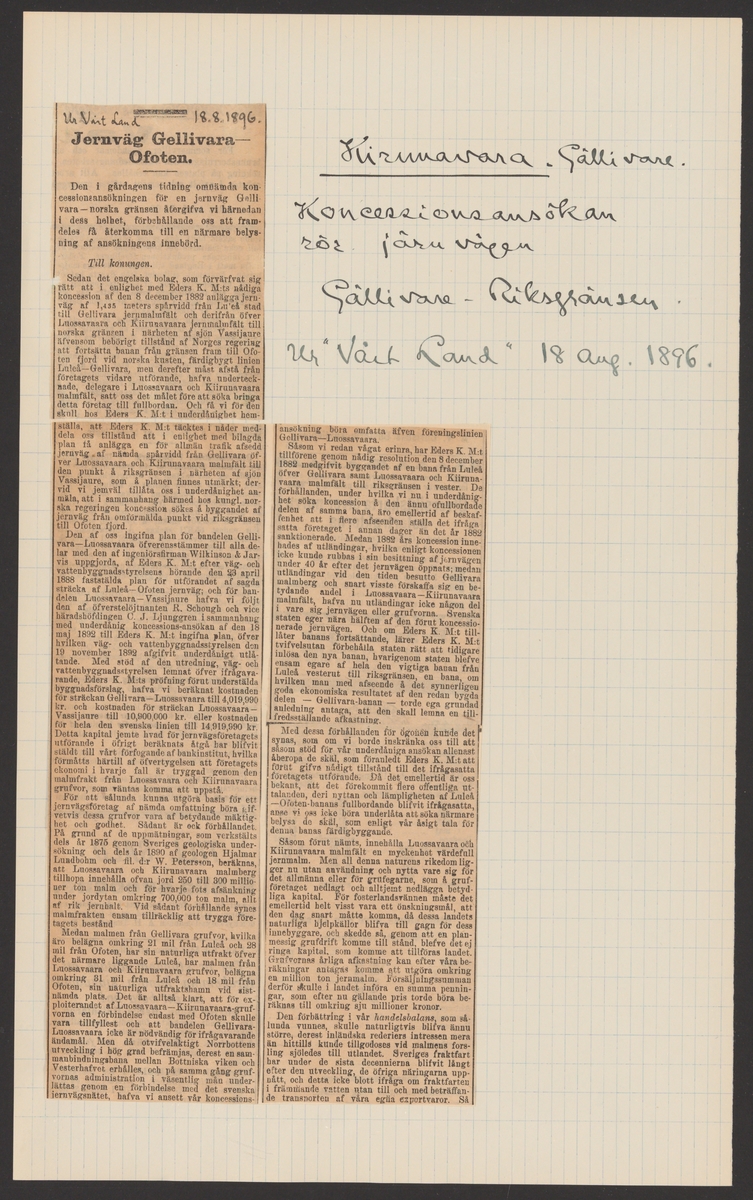 Ur Vårt Land 18.8.1896.
Jernväg Gellivara—
Ofoten.
Den i gårdagens tidning omnämda kon-
cessionsansökningen för en jernväg Gelli
vara—norska gränsen återgifva vi härnedan
i dess helhet, förbehållande oss att fram-
deles få återkomma till en närmare belys-
ning af ansökningens innebörd.
Till konungen.
Sedan det engelska bolag, som förvärfvat sig
rätt att i enlighet med Eders K. M:ts nådiga
koncession af den 8 december 1882 anlägga jern-
väg af 1,435 meters spårvidd från Luleå stad
till Gellivara jernmalmfält och derifrån öfver
Luossavaara och Kiirunavaara jernmalmfält till
norska gränsen i närheten af sjön Vassijaure
äfvensom behörigt tillstånd af Norges regering
att fortsätta banan från gränsen fram till Ofo-
ten fjord vid norska kusten, färdigbygt linien
Luleå—Gellivara, men derefter måst afstå från
företagets vidare utförande, hafva underteck-
nade, delegare i Luossavaara och Kiirunavaara
malmfält, satt oss det målet före att söka bringa
detta företag till fullbordan. Och få vi för den
skull hos Eders K. M:t i underdånighet hem-
ställa, att Eders K. M:t täcktes i nåder med-
dela oss tillstånd att i enlighet med bilagda
plan få anlägga en för allmän trafik afsedd
jernväg af nämda spårvidd från Gellivara öf-
ver Luossavaara och Kiirunavaara malmfält till
den punkt å riksgränsen i närheten af sjön
Vassijaure, som å planen finnes utmärkt; der-
vid vi jemväl tillåta oss i underdånighet an-
mäla, att i sammanhang härmed hos kungl. nor-
ska regeringen koncession sökes å byggandet af
jernväg från omförmälda punkt vid riksgränsen
till Ofoten fjord.
Den af oss ingifna plan för bandelen Gelli-
vara—Luossavaara öfverensstämmer till alla de-
lar med den af ingeniörsfirman Wilkinson & Jar-
vis uppgjorda, af Eders K. M:t efter väg- och
vattenbyggnadsstyrelsens hörande den 23 april
1888 fastställda plan för utförandet af sagda
sträcka af Luleå—Ofoten jernväg; och för ban-
delen Luossavaara—Vassijaure hafva vi följt
den af öfverstelöjtnanten R. Schough och vice
häradshöfdingen C. J. Ljunggren i sammanhang
med underdånig koncessions-ansökan af den 18
maj 1892 till Eders K. M:t ingifna plan, öfver
hvilken väg- och vattenbyggnadsstyrelsen den
19 november 1892 afgifvit underdånigt utlå-
tande. Med stöd af den utredning, väg- och
vattenbyggnadsstyrelsen lemnat öfver ifrågava-
rande, Eders K. M:ts pröfning förut underställda
byggnadsförslag, hafva vi beräknat kostnaden
för sträckan Gellivara—Luossavaara till 4,019,990
kr. och kostnaden för sträckan Luossavaara—
Vassijaure till 10,900,000 kr. eller kostnaden
för hela den svenska linien till 14,919,990 kr.
Detta kapital jemte hvad för jernvägsföretagets
utförande i öfrigt beräknats åtgå har blifvit
stäldt till vårt förfogande af bankinstitut, hvilka
förmåtts härtill af öfvertygelsen att företagets
ekonomi i hvarje fall är tryggad genom den
malmfrakt från Luossavaara och Kiirunavaara
grufvor, som väntas komma att uppstå.
För att sålunda kunna utgöra basis för ett
jernvägsföretag af nämda omfattning böra gif-
vetvis dessa grufvor vara af betydande mäktig-
het och godhet. Sådant är ock förhållandet.
På grund af de uppmätningar, som verkställts
dels år 1875 genom Sveriges geologiska under-
sökning och dels år 1890 af geologen Hjalmar
Lundbohm och fil. d:r W. Petersson, beräknas,
att Luossavaara och Kiirunavaara malmberg
tillhopa innehålla ofvan jord 250 till 300 millio-
ner ton malm och för hvarje fots afsänkning
under jordytan omkring 700,000 ton malm, allt
af rik jernhalt. Vid sådant förhållande synes
malmfrakten ensam tillräcklig att trygga före-
tagets bestånd
Medan malmen från Gellivara grufvor, hvilka
äro belägna omkring 21 mil från Luleå och 28
mil från Ofoten, har sin naturliga utfrakt öfver
det närmare liggande Luleå, har malmen från
Luossavaara och Kiirunavaara grufvor, belägna
omkring 31 mil från Luleå och 18 mil från
Ofoten, sin naturliga utfraktshamn vid sist-
nämda plats. Det är alltså klart, att för ex-
ploiterandet af Luossavaara—Kiirunavaara-gruf-
vorna en förbindelse endast med Ofoten skulle
vara tillfyllest och att bandelen Gellivara-
Luossavaara icke är nödvändig för ifrågavarande
ändamål. Men då otvifvelaktigt Norrbottens
utveckling i hög grad befrämjas, derest en sam-
manbindningsbana mellan Bottniska viken och
Vesterhafvet erhålles, och på samma gång gruf-
vornas administration i väsentlig mån under-
lättas genom en förbindelse med det svenska
jernvägsnätet, hafva vi ansett vår koncessions-
ansökning böra omfatta äfven föreningslinien
Gellivara—Luossavaara.
Såsom vi redan vågat erinra, har Eders K. M:t
tillförene genom nådig resolution den 8 december
1882 medgifvit byggandet af en bana från Luleå
öfver Gellivara samt Luossavaara och Kiiruna-
vaara malmfält till riksgränsen i vester. De
förhållanden, under hvilka vi nu i underdånig-
het söka koncession å den ännu ofullbordade
delen af samma bana, äro emellertid af beskaf-
fenhet att i flere afseenden ställa det ifråga
satta företaget i annan dager än det år 1882
sanktionerade. Medan 1882 års koncession inne-
hades af utländingar, hvilka enligt koncessionen
icke kunde rubbas i sin besittning af jernvägen
under 40 år efter det jernvägen öppnats; medan
utländingar vid den tiden besutto Gellivara
malmberg och snart visste förskaffa sig en be-
tydande andel i Luossavaara—Kiirunavaara
malmfält, hafva nu utländingar icke någon del
i vare sig jernvägen eller grufvorna. Svenska
staten eger nära hälften af den förut koncessio-
nerade jernvägen. Och om Eders K. M:t till-
låter banans fortsättande, lärer Eders K. M:t
tvifvelsutan förbehålla staten rätt att tidigare
inlösa den nya banan, hvarigenom staten blefve
ensam egare af hela den vigtiga banan från
Luleå vesterut till riksgränsen, en bana, om
hvilken man med afseende å det synnerligen
goda ekonomiska resultatet af den redan bygda
delen — Gellivara-banan — torde ega grundad
anledning antaga, att den skall lemna en till-
fredsställande afkastning.
Med dessa förhållanden för ögonen kunde det
synas, som om vi borde inskränka oss till att
såsom stöd för vår underdåniga ansökan allenast
åberopa de skäl, som föranledt Eders K. M:t att
förut gifva nådigt tillstånd till det ifrågasatta
företagets utförande. Då det emellertid är oss
bekant, att det förekommit flere offentliga ut-
talanden, deri nyttan och lämpligheten af Luleå
—Ofoten-banans fullbordande blifvit ifrågasatta,
anse vi oss icke böra underlåta att söka närmare
belysa de skäl, som enligt vår åsigt tala för
denna banas färdigbyggande.
Såsom förut nämts, innehålla Luossavaara och
Kiirunavaara malmfält en myckenhet värdefull
jernmalm. Men all denna naturens rikedom lig-
ger nu utan användning och nytta vare sig för
det allmänna eller för grufegarne, som å gruf-
företaget nedlagt och alltjemt nedlägga betyd-
liga kapital. För fosterlandsvännen måste det
emellertid helt visst vara ett önskningsmål, att
den dag snart måtte komma, då dessa landets
naturliga hjelpkällor blifva till gagn för dess
innebyggare, och skedde så, genom att en plan-
messig grufdrift komme till stånd, blefve det ej
rings kapital, som komme att tillföras landet.
Grufvornas årliga afkastning kan efter våra be-
räkningar antagas komma att utgöra omkring
en million ton jernmalm. Försäljningssumman
derför skulle i landet införa en summa pennin-
gar, som efter nu gällande pris torde böra be-
räknas till omkring sju millioner kronor.
Den förbättring i vår handelsbalans, som så-
lunda vunnes, skulle naturligtvis blifva ännu
större, derest inländska rederiers intressen mera
än hittills kunde tillgodoses vid malmens fors-
ling sjöledes till utlandet. Sveriges fraktfart
har under de sista decennierna blifvit långt
efter den utveckling, de öfriga näringarna upp-
nått, och detta icke blott ifråga om fraktfarten
i främmande vatten utan till och med beträffan-
de transporten af våra egna exportvaror. Så
Kirunavara. Gällivare.
Koncessionsansökan
rör järnvägen
Gällivare – Riksgränsen.
Ur "Vårt Land" 18 Aug. 1896.